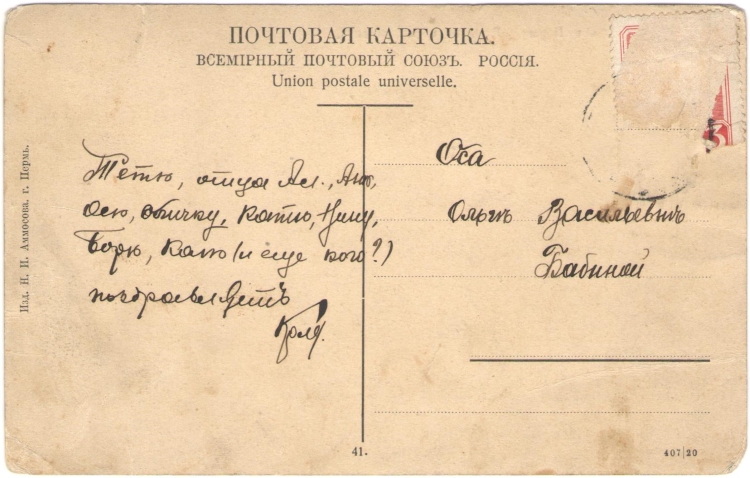 ПОЧТОВАЯ КАРТОЧКА.
ВСЕМІРНЫЙ ПОЧТОВЫЙ СОЮЗЪ. РОССІЯ.
Union postale universelle.
Изд. Н. И. Аммосова, г. Пермь.
Тётю, отца Ал.,
Катю, Нину,
Борю, Колю (и еще кого?)
поздравляетъ
Коля.
Оса
Ольгѣ Васильевнѣ
Бабиной
3
41.
407|20